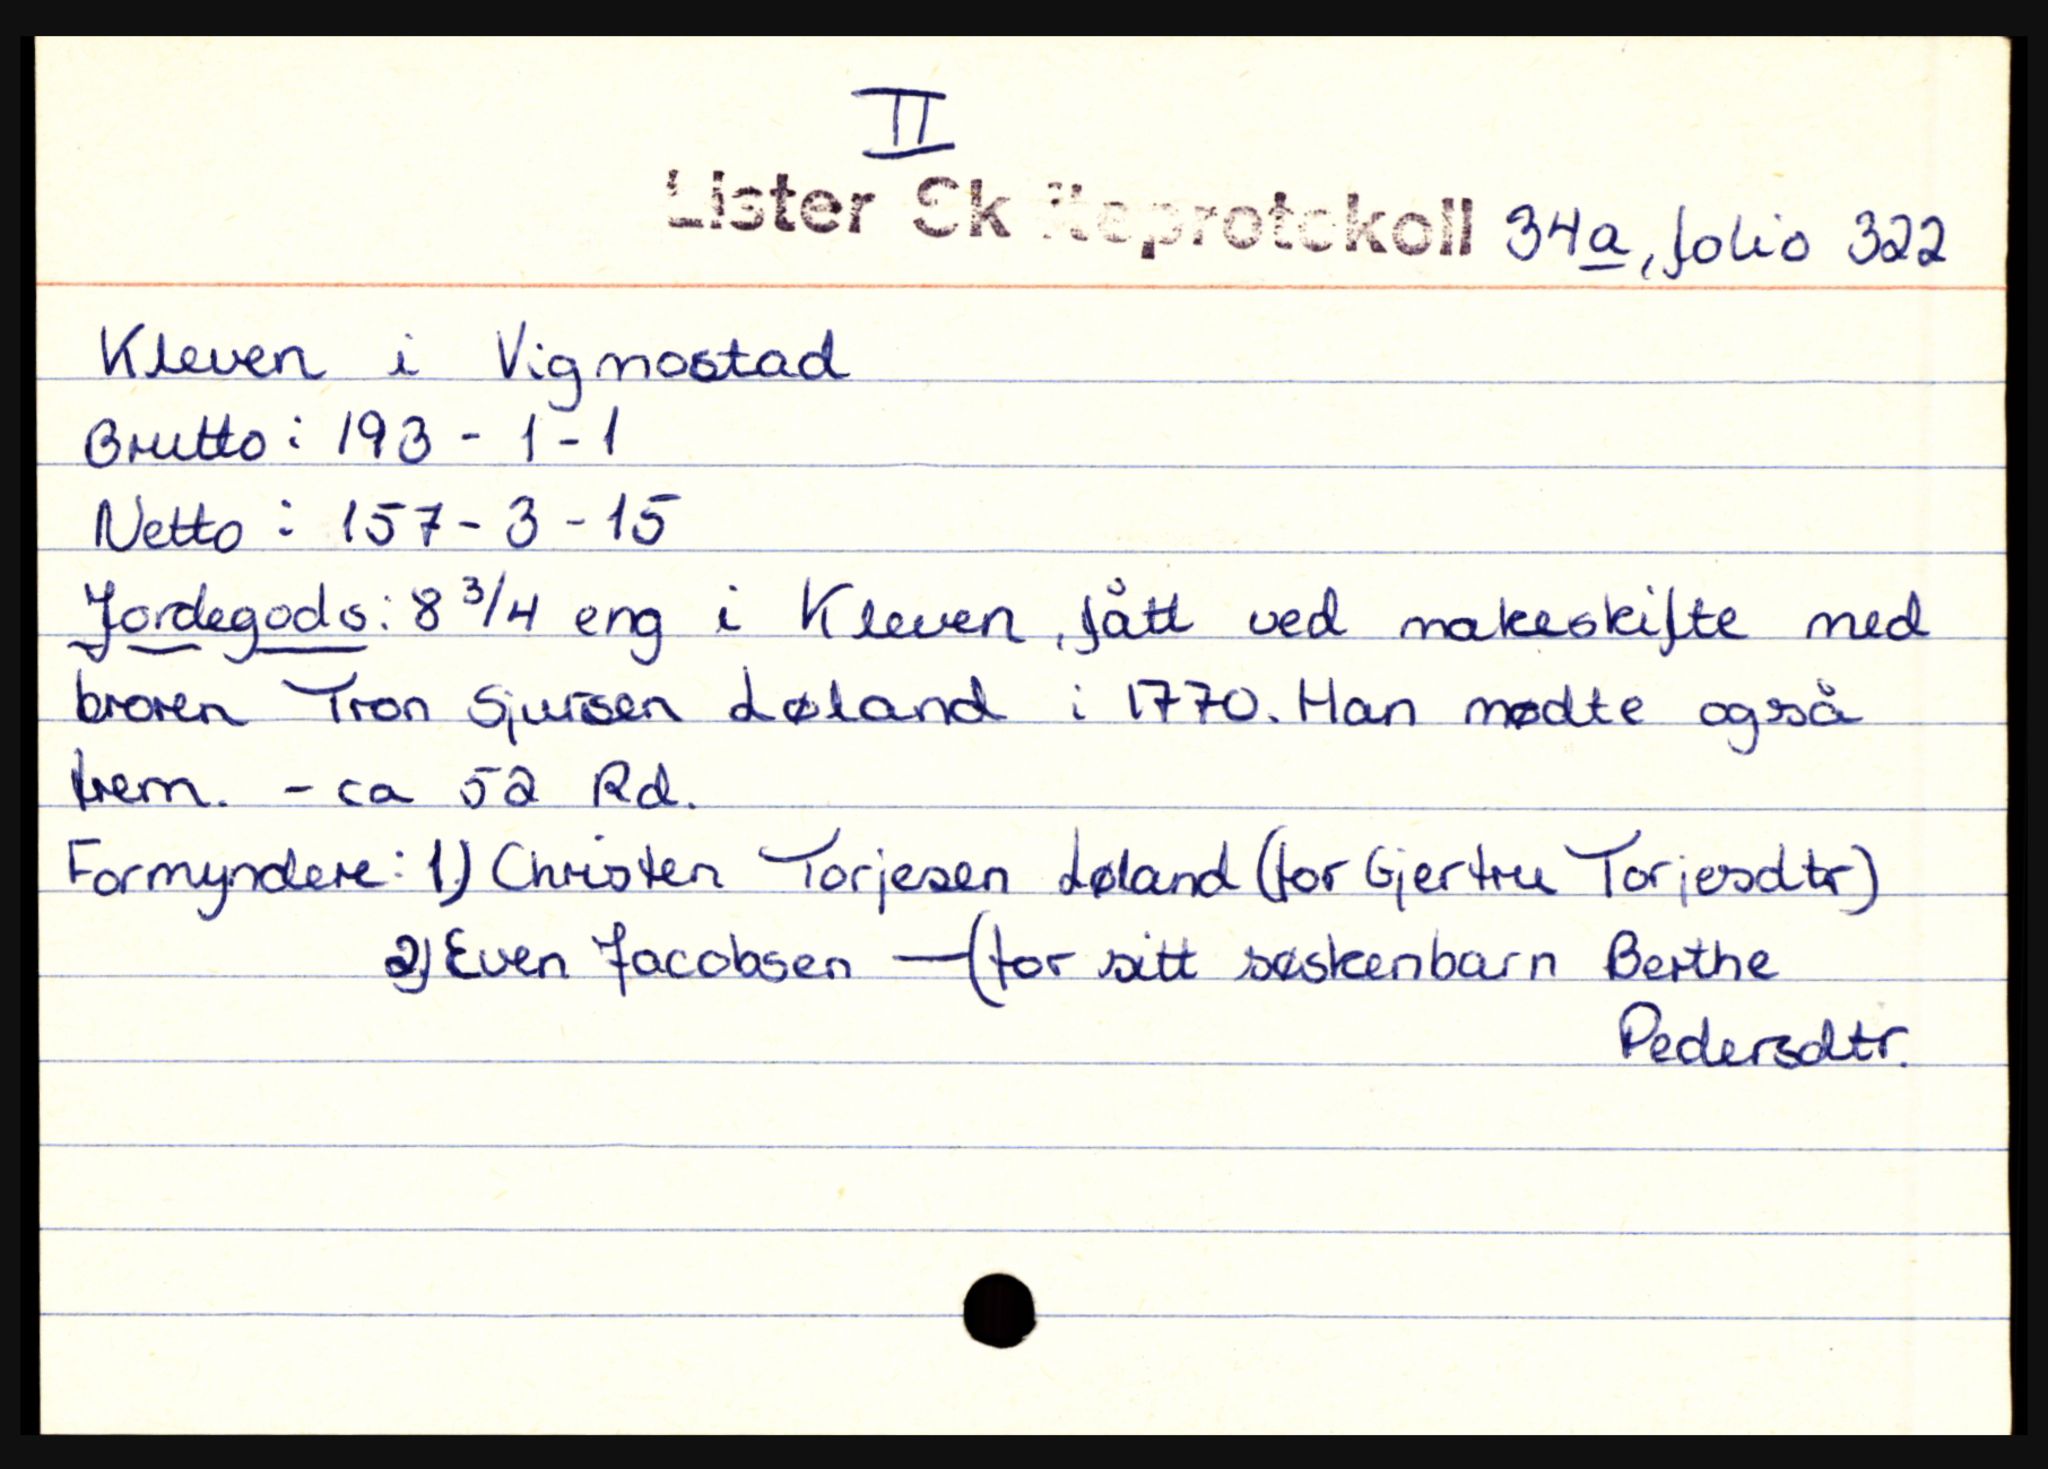 II
Lister Skifteprotokoll 34a, folio 322
Kleven i Vigmostad
Brutto: 193 - 1 - 1
Netto: 157 - 3 - 15
Jordegods: 8 3/4 eng i Kleven, fått ved makeskifte med
broren Tron Sjursen Løland i 1770. Han mødte også
frem. - ca 52 Rd.
Formyndere: 1) Christen Torjesen Løland (for Gjertru Torjesdtr)
2) Even Jacobsen — (for sitt søskenbarn Berthe
Pedersdtr.